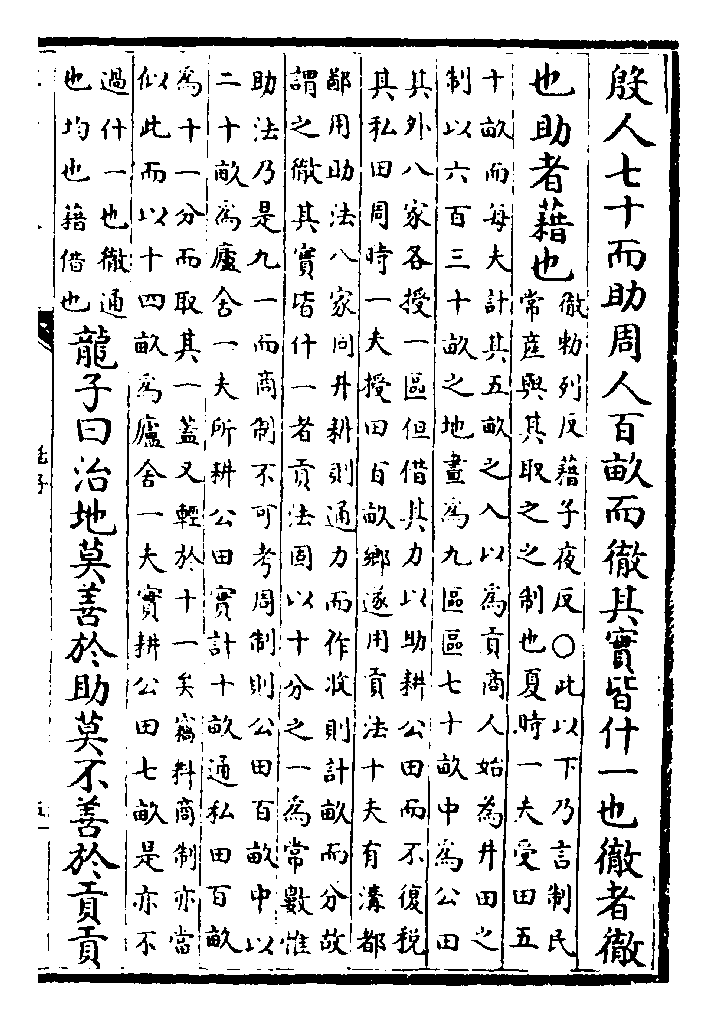 殷人七十而助周人百畝而徹其實皆什一也徹者徹
也助者藉也
徹勑列反藉子夜反○此以下乃言制民
常產與其取之之制也夏時一夫受田五
十畝而每夫計其五畝之入以為貢商人始為井田之
制以六百三十畝之地畫為九區區七十畝中為公田
其外八家各授一區但借其力以助耕公田而不復稅
其私田周時一夫授田百畝鄉遂用貢法十夫有溝都
鄙用助法八家同井耕則通力而作收則計畝而分故
謂之徹其實皆什一者貢法固以十分之一為常數惟
助法乃是九一而商制不可考周制則公田百畝中以
二十畝為廬舍一夫所耕公田實計十畝通私田百畝
為十一分而取其一蓋又輕於十一矣竊料商制亦當
似此而以十四畝為廬舍一夫實耕公田七畝是亦不
過什一也徹通
也均也藉借也
龍子曰治地莫善於助莫不善於貢貢